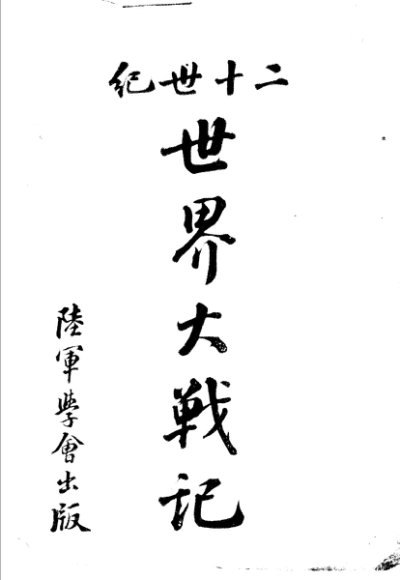 二十世紀
世界大戦记
陸軍學會出版